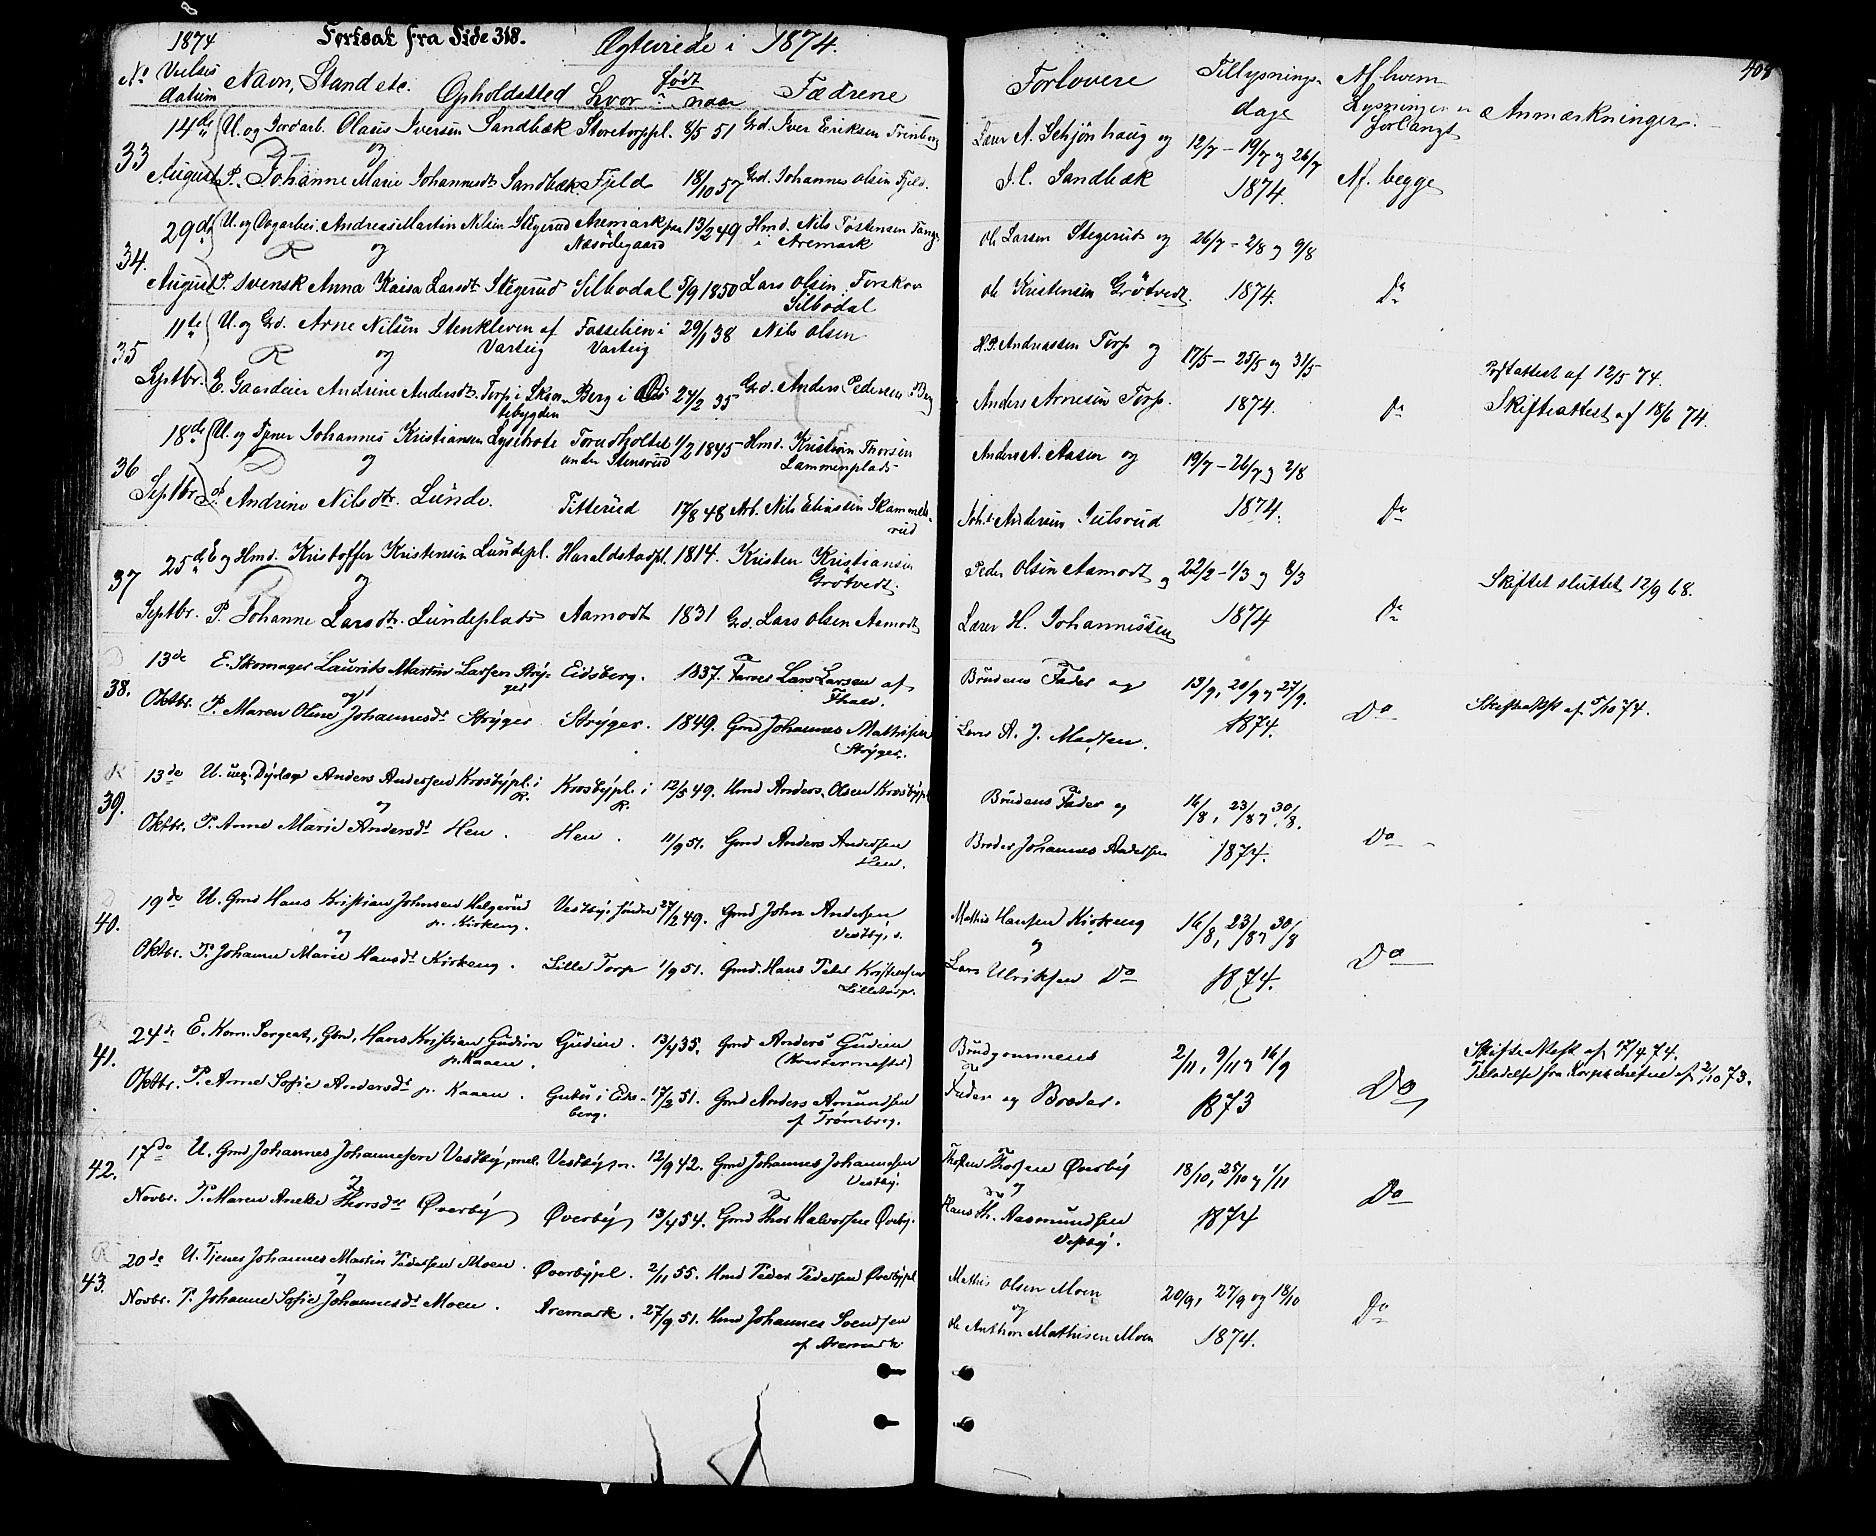 8
1874 Fortsat fra Side 318. Ægteviede i 1874.
408
No Vielses datum Navn, Stand etc. Opholdssted Født hvor? naar Fædrene
Forlovere Tillysnings dage Af hvem Lysningen er forlangt Anmærkninger.
33 14de August U. og Jordarb. Olaus Iversen Sandbæk Storetorppl. 8/5 51 Grd. Iver Eriksen
og
P. Johanne Marie Johannesdt. Sandbæk Fjeld 18/10 57 Grd. Johannes Olsen Fjeld.
Lærer A. Schjønhaug og
J. C. Sandbæk
12/7 - 19/7 og 26/7
1874.
Af begge
34. 29de August U. og Andreas Martin Nilsen Stegerud Aremark 13/2 49 Hmd. Nils Tostensen
Næsødegaard i Aremark
og
P. Svensk Anna Kaisa Larsdt. Stegerud Silbodal 5/9 1850 Lars Olsen,
Silbodal
Ole Larsen Stegerud og
Ole Kristensen Grøtvedt.
26/7 - 2/8 og 9/8
1874.
Do
35 11te Septbr. U. og Grd. Arne Nilsen Stenkleven af Fosselien i 29/1 38 Nils Olsen
Varteig Varteig
og
E. Gaardeier Andrine Andersdt. Torp i Berg i 27/2 35 Grd. Anders Pedersen Berg
H. P. Andreassen Torp og
Anders Arnesen Torp.
17/5 - 25/5 og 31/5
1874.
Do
12/5 74.
Skifteattest af 18/6 74.
36 18de Septbr. U. og Tjener Johannes Kristiansen Torudholtet 1/2 1845 Hmd. Kristian Thorsen
under Stensrud Lammenplads
og
P. Andrine Nilsdtr. Lunde. Titterud 17/8 48 Arb. Nils Skammels-
rud
Anders A. Aasen og
Johs. Andersen Julsrud
19/7 - 26/7 og 2/8
1874.
Do
37 25de Septbr. E. og Hmd. Kristoffer Kristensen Lundepl. Haraldstadpl. 1814. Kristen Kristiansen
Grøtvedt.
og
P. Johanne Larsdtr. Lundeplads Aamodt 1831 Grd. Lars Olsen Aamodt
Peder Olsen Aamodt og
Lærer H. Johannessen
22/2 - 1/3 og 8/3
1874
Do
Skiftet sluttet 12/9 68.
38. 13de Oktbr. E. Skomager Laurits Martin Larsen Stryger Eidsberg. 1837. Farver Lars Larsen af
og
P. Maren Oline Johannesdr Stryger Stryger. 1849. Gmd Johannes Mathisen
Stryger.
Brudens Fader og
Lærer A. J. Madsen.
13/9, 20/9 og 27/9.
1874.
Do
Skifteattest af 5/10 74.
39. 13de Oktbr. U. Anders Andersen Krosbypl. i R. Krosbypl. i R. 12/5 49. Hmd Anders Olsen Krosbypl
og
P. Anne Marie Andersdr Hen. Hen. 11/9 51. Gmd Anders Andersen
Hen.
Brudens Fader og
Broder Johannes Andersen
16/8, 23/8 og 30/8.
1874.
Do
40. 19de Oktbr. U. Gmd Hans Kristian Johnsen Helgerud Vestby, søndre 27/12 49. Gmd John Andersen
p. Kirkeng. Vestby, s.
og
P. Johanne Marie Hansdr Kirkeng. Lille Torp 1/9 51. Gmd. Hans Peter Kristensen
Lilletorp.
Mathis Hansen Kirkeng
og
Lars Ulriksen Do
16/8, 23/8 og 30/8
1874.
Do
41. 24de Oktbr. E. Korn. Sergeant, Gmd, Hans Kristian Gudim Gudim. 13/4 35. Gmd Anders Gudim
p. Kaaen.
P. Anne Sofie Andersdr p. Kaaen. i Eids-
berg. 17/2 51. Gmd Anders Amundsen
af Trømborg.
Brudgommens
Fader og Broder.
2/11, 9/11 og 16/9
1873
Do
Skifteattest af 17/4 74.
Tilladelse fra Korpschefen af 2/10 73.
42. 17de Novbr. U. Gmd Johannes Johannesen Vestby, mel. Vestby, m. 12/9 42. Gmd Johannes Johannesen
Vestby.
og
P. Maren Aneke Thorsdr Øverby Øverby 13/4 54. Gmd Thor Halvorsen Øverby.
Thosten Thorsen Øverby
og
Hans Th. Aasmundsen
Vestby.
18/10, 25/10 og 1/11
1874
Do
43. 20de Novbr. U. Tjener Johannes Martin Pedersen Moen. Øverbypl. 2/11 55. Hmd Peder Pedersen Øverbypl
og
P. Johanne Sofie Johannesdr Moen. Aremark. 27/9 51. Hmd Johannes Svendsen
af Aremark
Mathis Olsen Moen
og
Ole Anthon Mathisen Moen
20/9, 27/9 og 18/10
1874.
Do